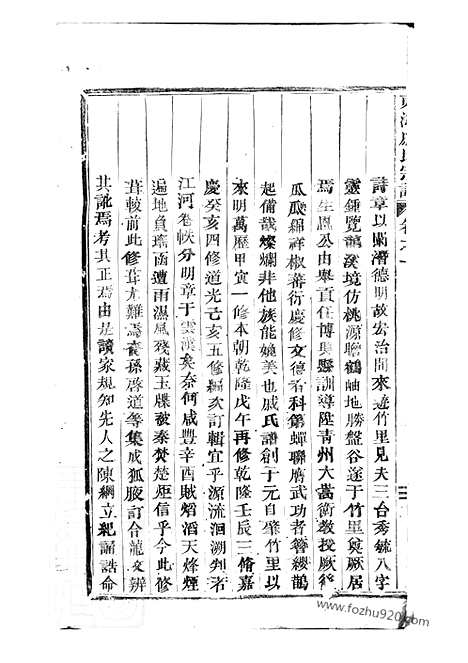 東海戚氏宗譜 卷之一
詩章以闡潛德明故宏治間來遊竹里見夫三台秀毓八字
靈鍾覽鵝溪境仿桃源瞻鶴岫地勝盤谷遂于竹里奠厥居
焉生恩公由舉貢任博興縣訓導陞青州大嵩衛教授厥後
瓜瓞綿祥椒蕃衍慶修文德者科第蟬聯膺武功者簪纓鵲
起備哉燦爛非他族能媲美也戚氏譜創于元自肇竹里以
來明萬歷甲寅一修本朝乾隆戊午再修乾隆壬辰三脩嘉
慶癸亥四修道光己亥五修編次訂輯宜乎源流洄溯判若
江河卷帙分明章于雲漢矣奈何咸豐辛酉賊熖滔天烽煙
遍地負瑤函遭雨濕風殘藏玉牒被秦焚楚炬信乎今此修
葺較前此修葺尤難焉裔孫啓道等集成狐腋訂合龍文辨
其訛焉考其正焉由是讀家規知先人之陳綱立紀誦誥命
www.fozhu920.com